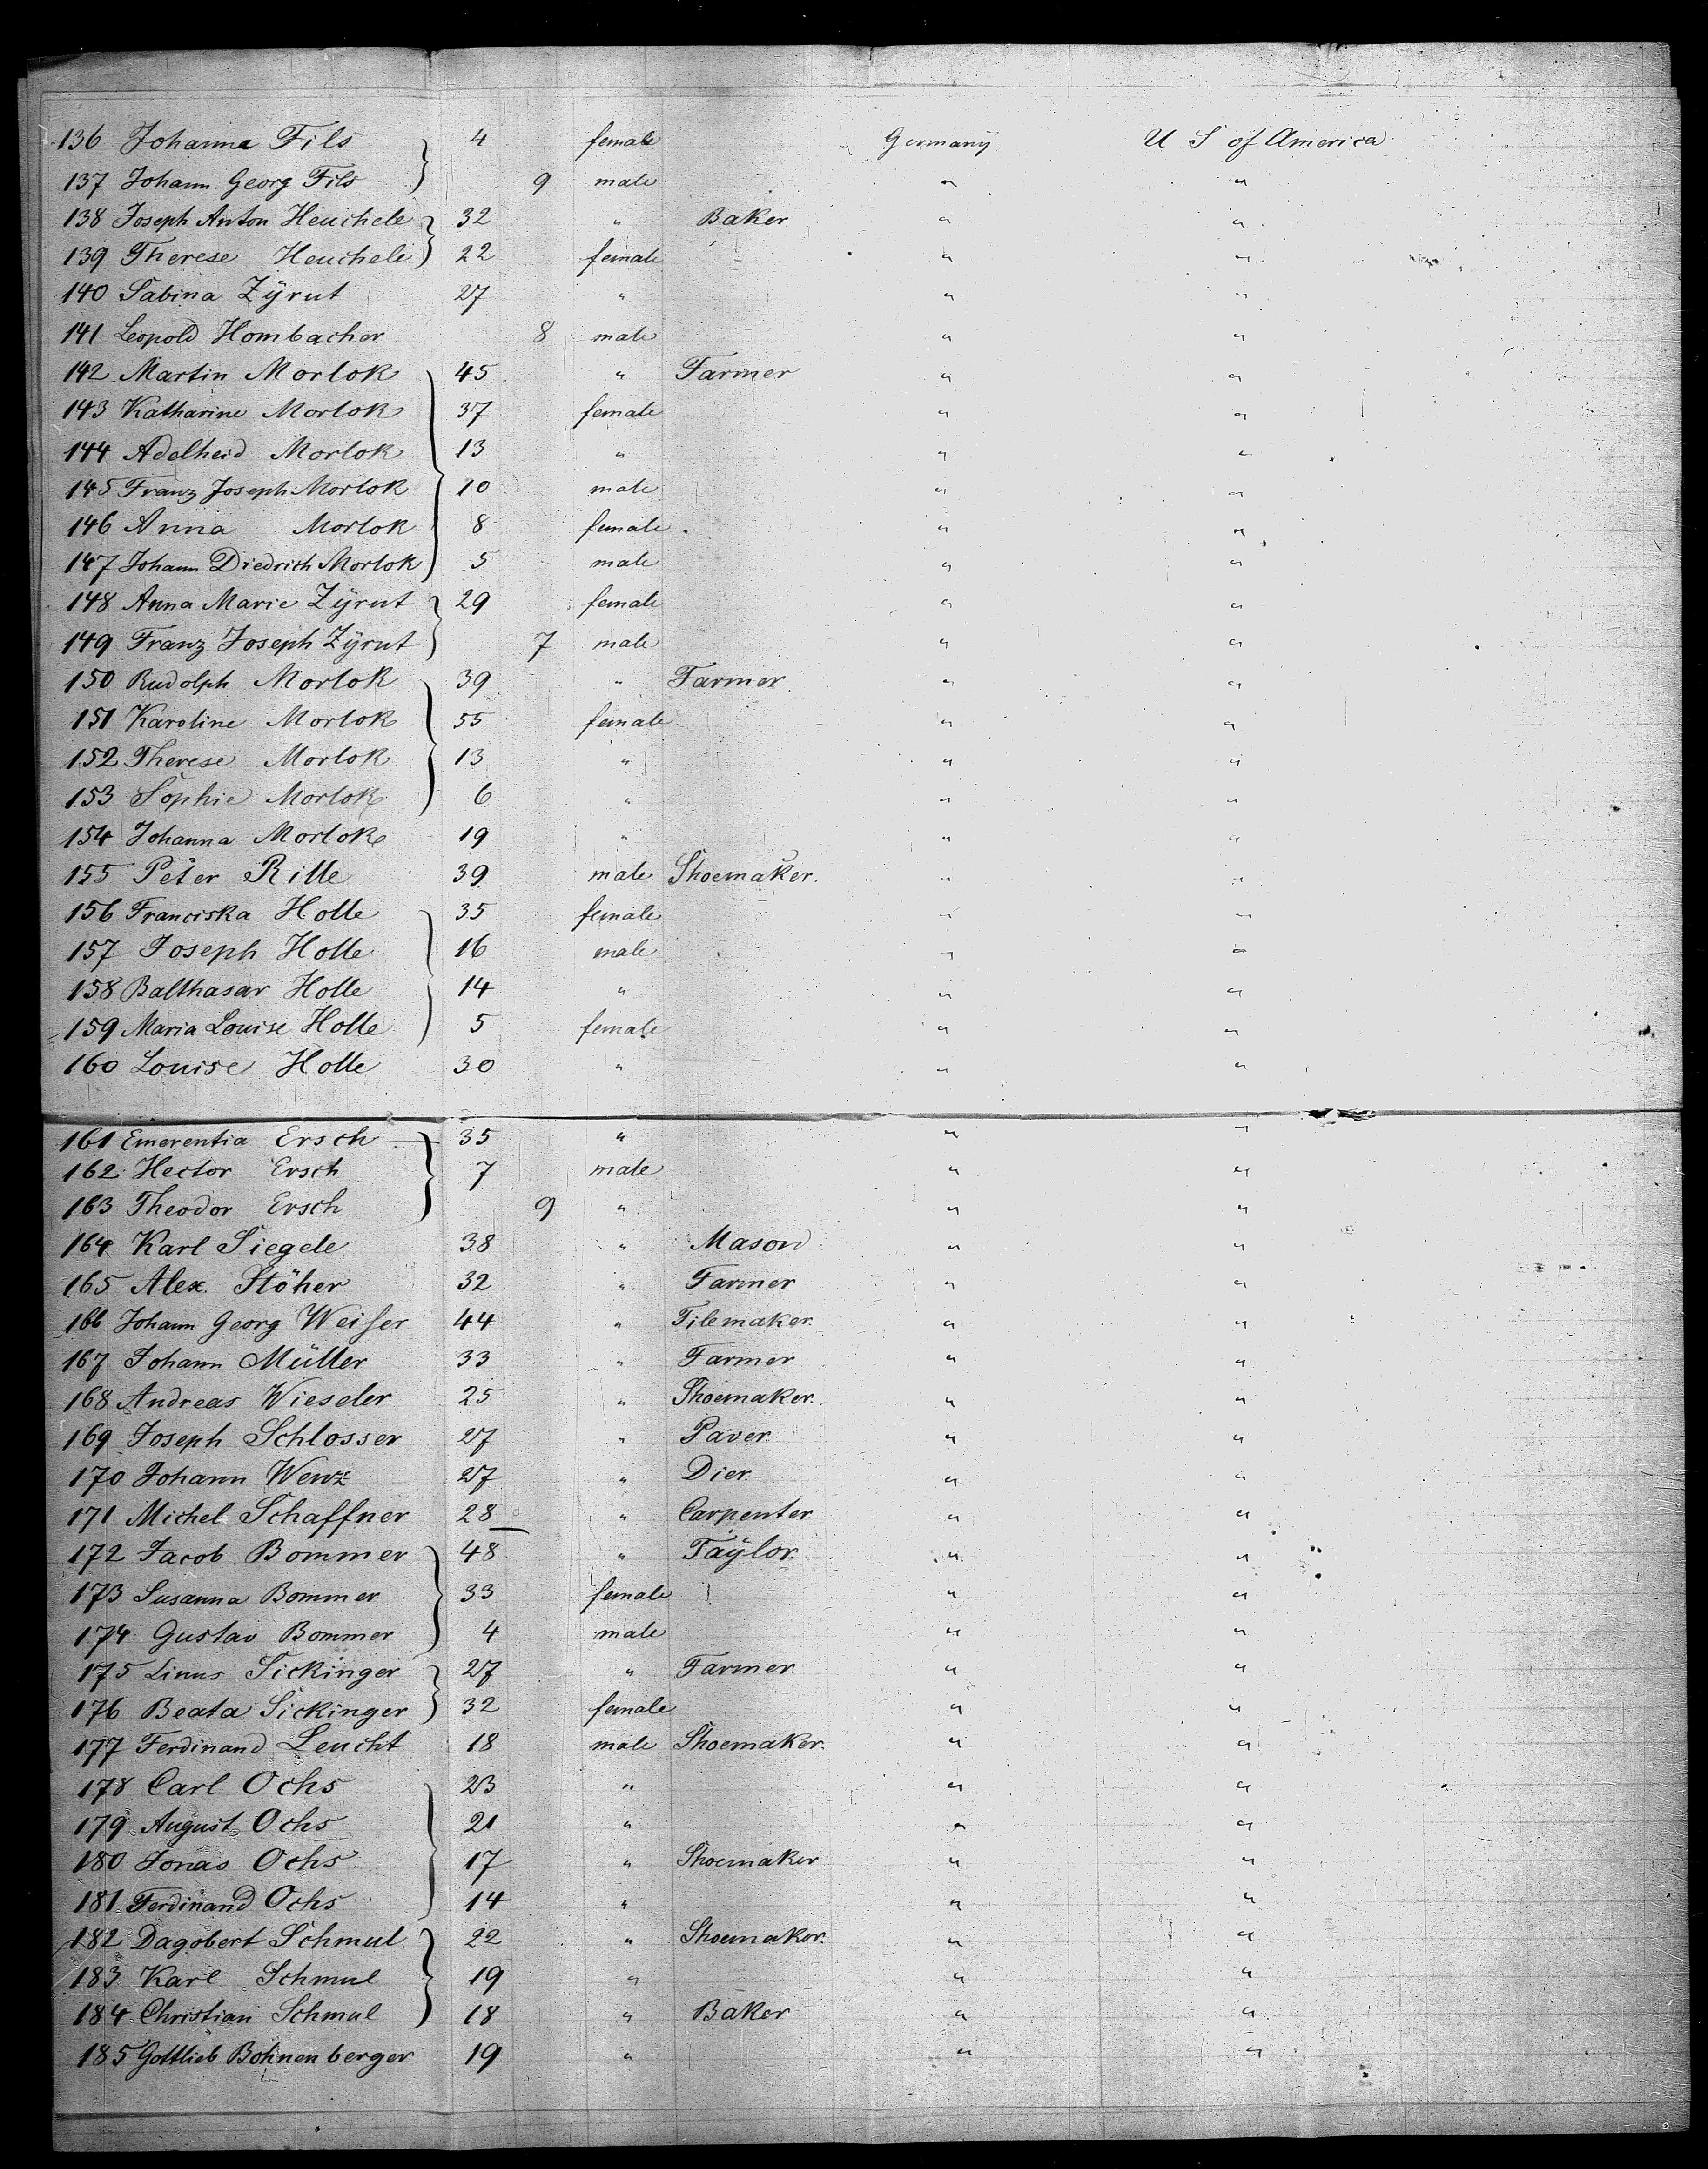 136 Johanna Fils 4 female Germany U S of America
137 Johann Georg Fils 9 male " "
138 Joseph Anton Heuchele 32 " Baker " "
139 Therese Heuchele 22 female " "
140 Sabina Zÿrut 27 " " "
141 Leopold Hombacher 8 male " "
142 Martin Morlok 45 " Farmer " "
143 Katharine Morlok 37 female " "
144 Adelheid Morlok 13 " " "
145 Franz Joseph Morlok 10 male " "
146 Anna Morlok 8 female " "
147 Johann Diedrich Morlok 5 male " "
148 Anna Marie Zÿrut 29 female " "
149 Franz Joseph Zÿrut 7 male " "
150 Rudolph Morlok 39 " Farmer " "
151 Karoline Morlok 55 female " "
152 Therese Morlok 13 " " "
153 Sophie Morlok 6 " " "
154 Johanna Morlok 19 " " "
155 Peter Rille 39 male Shoemaker. " "
156 Franciska Holle 35 female " "
157 Joseph Holle 16 male " "
158 Balthasar Holle 14 " " "
159 Maria Louise Holle 5 female " "
160 Louise Holle 30 " " "
161 Emerentia Ersch 35 " " "
162 Hector Ersch 7 male " "
163 Theodor Ersch 9 " " "
164 Karl Siegele 38 " Mason " "
165 Alex. Stöher 32 " Farmer " "
166 Johann Georg Weiſser 44 " Tilemaker. " "
167 Johann Müller 33 " Farmer " "
168 Andreas Wieseler 25 " Shoemaker. " "
169 Joseph Schlosser 27 " Paver. " "
170 Johann Wenz 27 " Dier. " "
171 Michel Schaffner 28 " Carpenter. " "
172 Jacob Bommer 48 " Taÿlor. " "
173 Susanna Bommer 33 female " "
174 Gustav Bommer 4 male " "
175 Linus Sickinger 27 " Farmer " "
176 Beata Sickinger 32 female " "
177 Ferdinand Leucht 18 male Shoemaker. " "
178 Carl Ochs 23 " " "
179 August Ochs 21 " " "
180 Jonas Ochs 17 " Shoemaker " "
181 Ferdinand Ochs 14 " " "
182 Dagobert Schmul 22 " Shoemaker. " "
183 Karl Schmul 19 " " "
184 Christian Schmul 18 " Baker " "
185 Gottlieb Bohnenberger 19 " " "